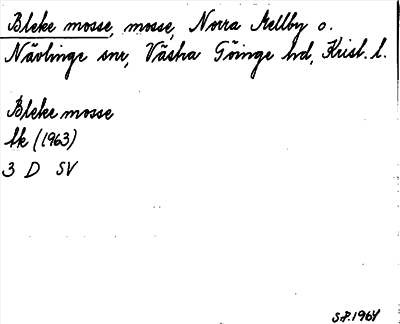 Bleke mosse, mosse, Norra Mellby o.
Nävlinge snr, Västra Göinge hd, Krist. l.
Bleke mosse
tk (1963)
3 D SV
S.P. 1964